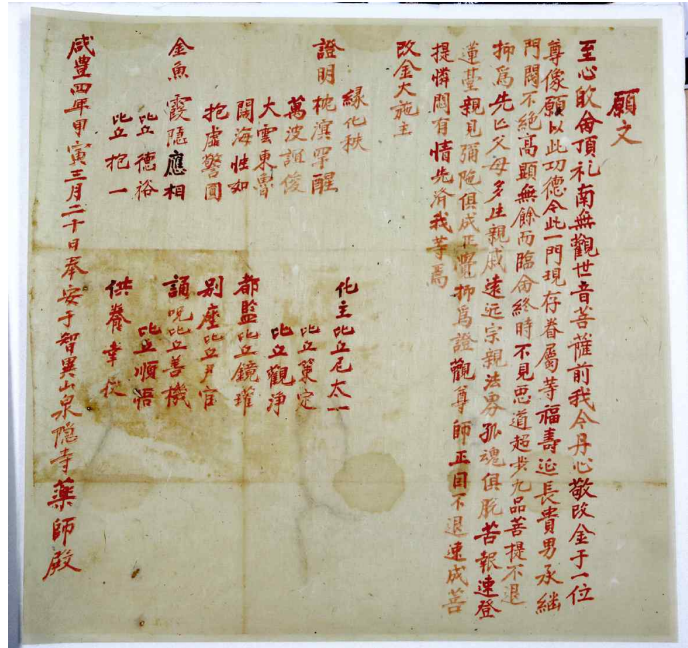 願文
至心飯侖頂礼南無觀世音菩薩前我今丹心敬改金于一位
尊像願以此功德令此一門現存眷屬等福壽延長貴男承継
門閥不絶高顕無餘而臨侖終時不見悪道超共九品菩提不退
抑爲先亡父母多生親戚遠近宗親法界孤魂俱脱苦報速登
蓮臺親見彌陁俱成正覺抑爲證觀尊師正因不退速成菩
提憐閔有情先濟我等焉
改金大施主
緣化秩
證明枕溟罕醒
萬波誼俊
大雲東魯
闊海性如
抱虛警圓
金魚霞隐應相
比丘德裕
比丘抱一
化主比丘尼太一
比丘策定
比丘觀淨
都監比丘鏡瓘
别座比丘月官
誦呪比丘善機
比丘順悟
供養幸
咸豊四年甲寅三月二十日奉安于智異山泉隐寺藥師殿